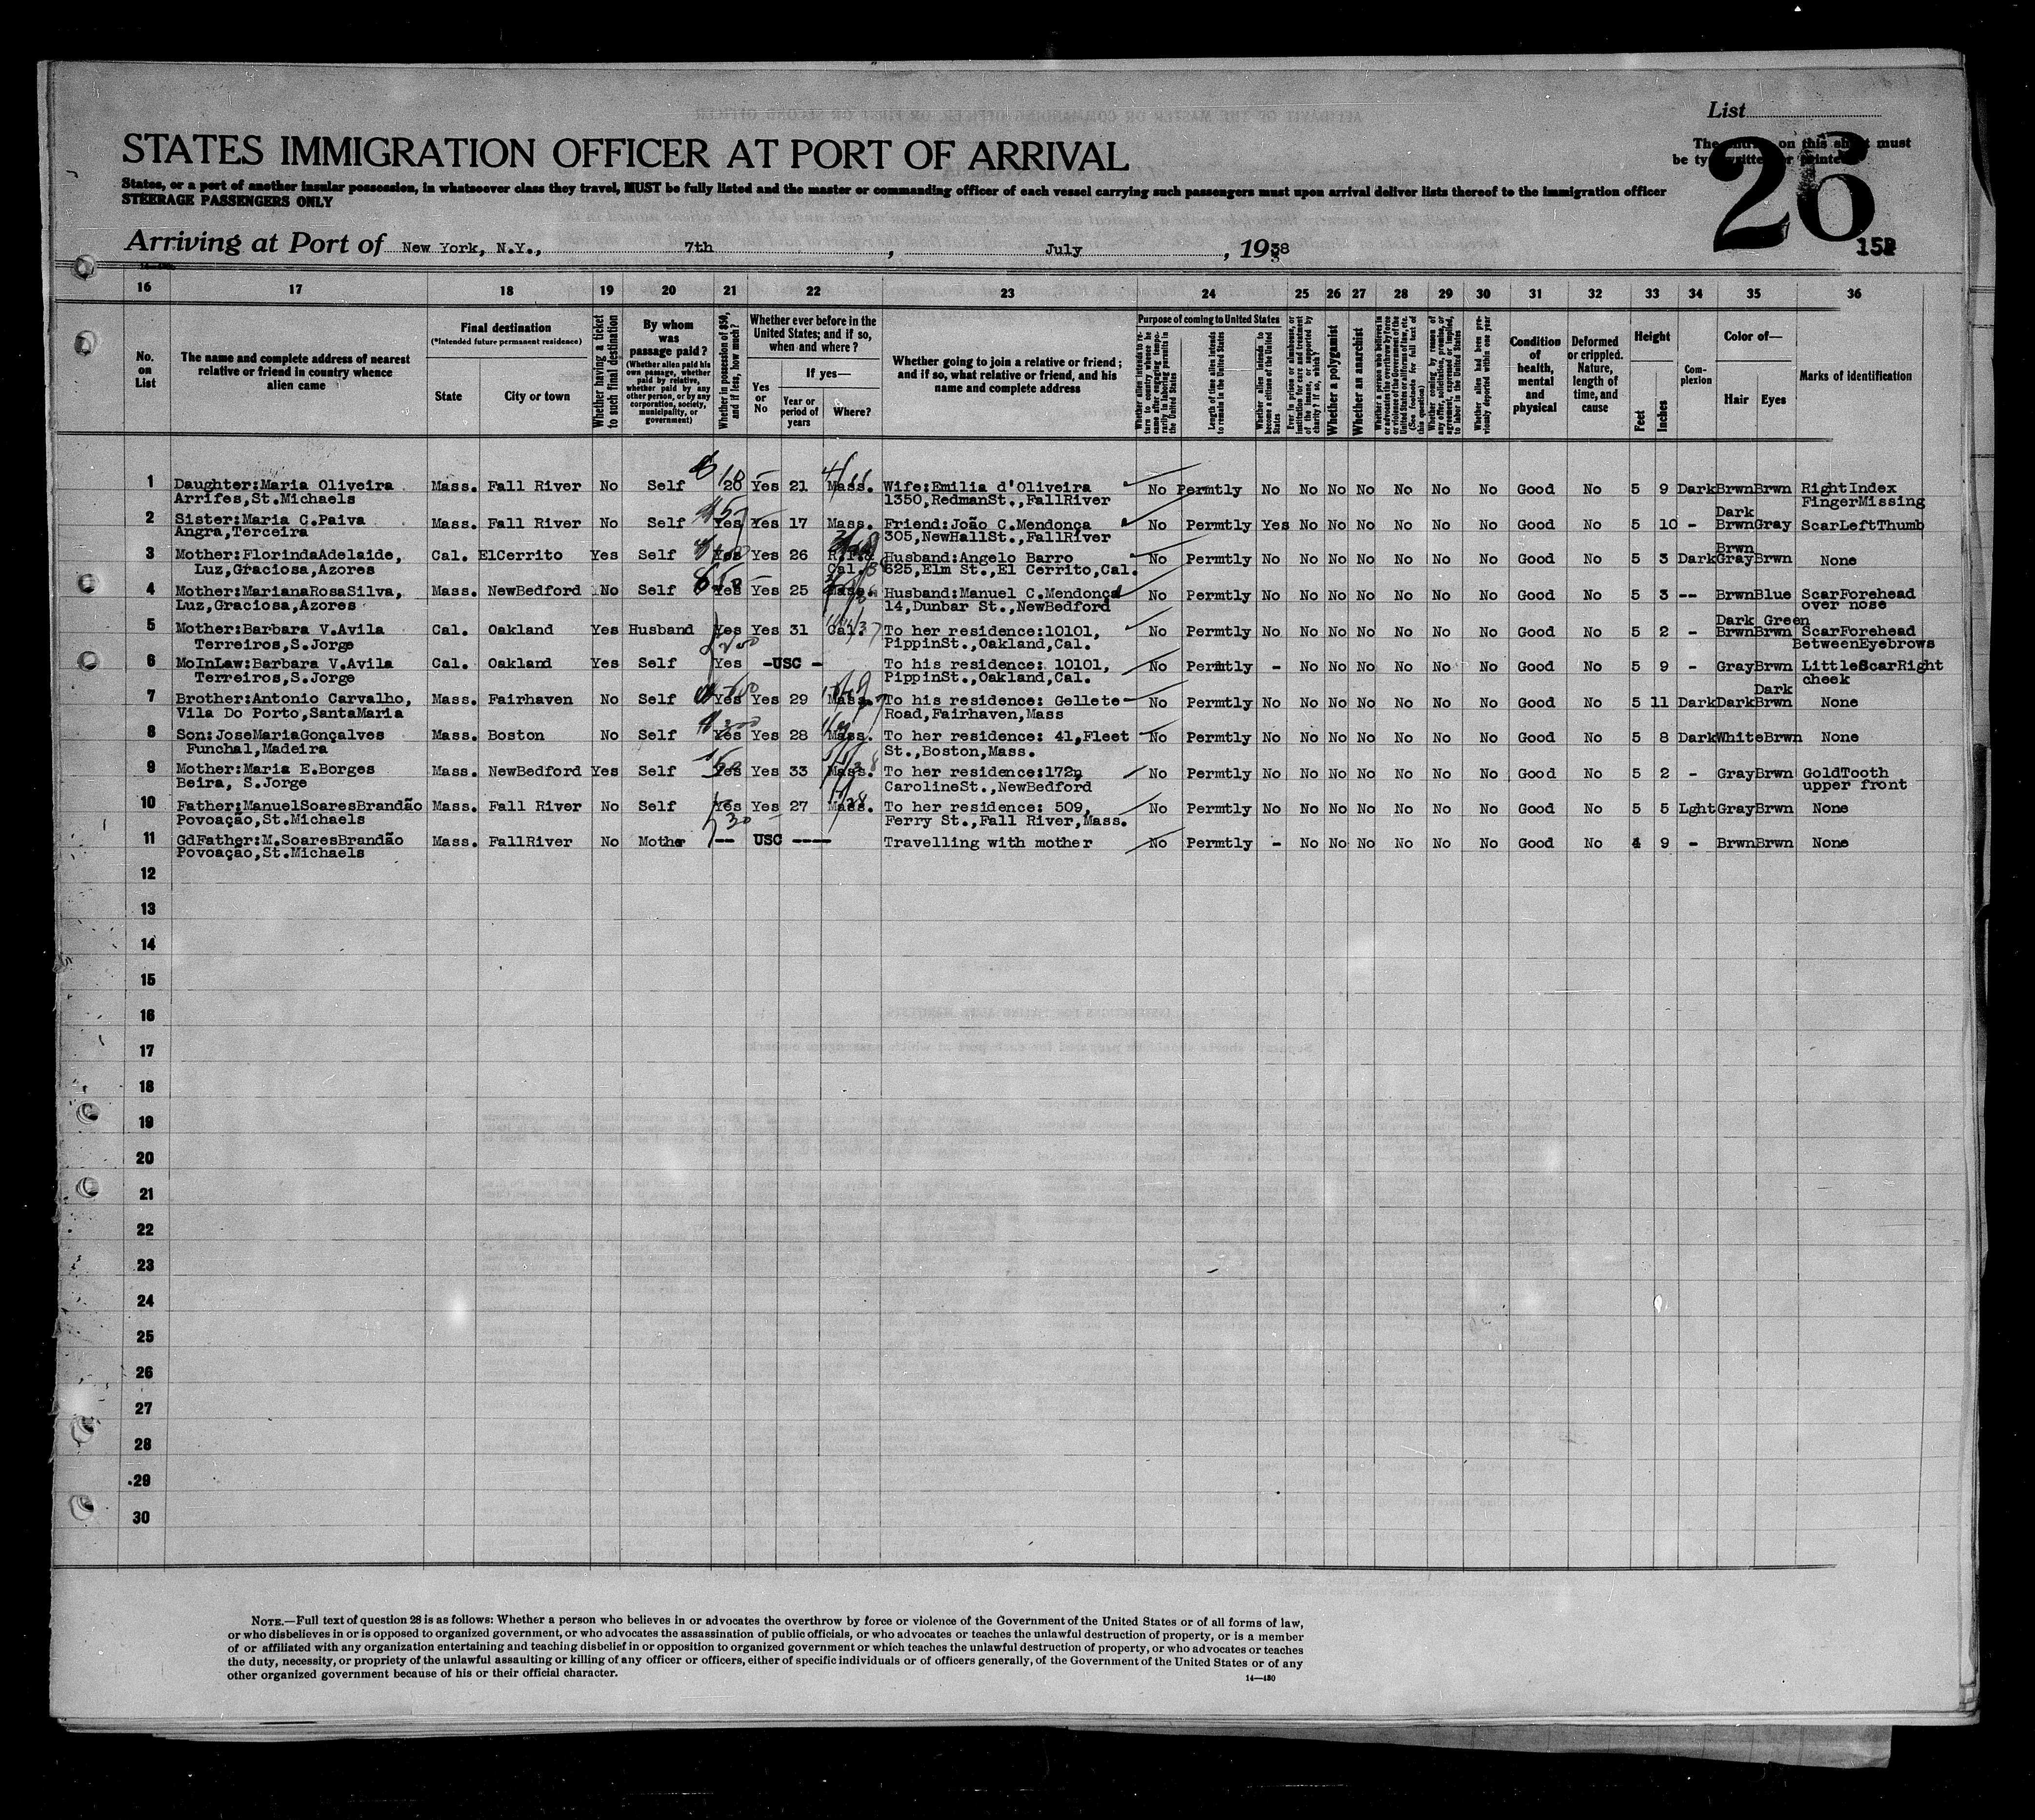 List
The entries on this sheet must
be typewritten or printed
26
152
STATES IMMIGRATION OFFICER AT PORT OF ARRIVAL
States, or a port of another insular possession, in whatsoever class they travel, MUST be fully listed and the master or commanding officer of each vessel carrying such passengers must upon arrival deliver lists thereof to the immigration officer
STEERAGE PASSENGERS ONLY
Arriving at Port of New York, N.Y., 7th , July , 1938
16 17 18 19 20 21 22 23 24 25 26 27 28 29 30 31 32 33 34 35 36
No. on List
The name and complete address of nearest relative or friend in country whence alien came
Final destination
(*Intended future permanent residence)
State
City or town
Whether having a ticket to such final destination
By whom was passage paid?
(Whether alien paid his own passage, whether paid by relative, whether paid by any other person, or by any corporation, society, municipality, or government)
Whether in possession of $50, and if less, how much?
Whether ever before in the United States; and if so, when and where?
Yes or No
If yes—
Year or period of years
Where?
Whether going to join a relative or friend; and if so, what relative or friend, and his name and complete address
Purpose of coming to United States
Length of time alien intends to remain in the United States
Whether alien intends to become a citizen of the United States
Whether a polygamist
Whether an anarchist
Whether alien had been previously deported within one year
Condition of health, mental and physical
Deformed or crippled. Nature, length of time, and cause
Height
Feet
Inches
Complexion
Color of—
Hair
Eyes
Marks of identification
1 Daughter:Maria Oliveira Mass. Fall River No Self 20 Yes 21 Mass. Wife:Emilia d'Oliveira No Permtly No No No No No No No Good No 5 9 Dark Brwn Brwn Right Index
Arrifes,St.Michaels 1350,RedmanSt.,FallRiver FingerMissing
2 Sister:Maria C.Paiva Mass. Fall River No Self Yes Yes 17 Mass. Friend:João C.Mendonça No Permtly Yes No No No No No No Good No 5 10 - Dark Brwn Gray ScarLeftThumb
Angra,Terceira 305,NewHallSt.,FallRiver
3 Mother:FlorindaAdelaide, Cal. ElCerrito Yes Self Yes Yes 26 Cal. Husband:Angelo Barro No Permtly No No No No No No No Good No 5 3 Dark Brwn Gray Brwn None
Luz,Graciosa,Azores 525,Elm St.,El Cerrito,Cal.
4 Mother:MarianaRosaSilva, Mass. NewBedford No Self Yes Yes 25 Mass. Husband:Manuel C.Mendonça No Permtly No No No No No No No Good No 5 3 -- Brwn Blue ScarForehead
Luz,Graciosa,Azores 14,Dunbar St.,NewBedford over nose
5 Mother:Barbara V.Avila Cal. Oakland Yes Husband Yes Yes 31 Cal. To her residence:10101, No Permtly No No No No No No No Good No 5 2 - Dark Brwn Green Brwn ScarForehead
Terreiros,S.Jorge PippinSt.,Oakland,Cal. BetweenEyebrows
6 MoInLaw:Barbara V.Avila Cal. Oakland Yes Self Yes -USC - To his residence: 10101, No Permtly - No No No No No No Good No 5 9 - Gray Brwn LittleScarRight
Terreiros,S.Jorge PippinSt.,Oakland,Cal. cheek
7 Brother:Antonio Carvalho, Mass. Fairhaven No Self Yes Yes 29 Mass. To his residence: Gellete No Permtly No No No No No No No Good No 5 11 Dark Dark Dark Brwn None
Vila Do Porto,SantaMaria Road,Fairhaven,Mass
8 Son:JoseMariaGonçalves Mass. Boston No Self Yes Yes 28 Mass. To her residence: 41,Fleet No Permtly No No No No No No No Good No 5 8 Dark White Brwn None
Funchal,Madeira St.,Boston,Mass.
9 Mother:Maria E.Borges Mass. NewBedford Yes Self Yes Yes 33 Mass. To her residence:172, No Permtly No No No No No No No Good No 5 2 - Gray Brwn GoldTooth
Beira, S.Jorge CarolineSt.,NewBedford upper front
10 Father:ManuelSoaresBrandão Mass. Fall River No Self Yes Yes 27 Mass. To her residence: 509, No Permtly No No No No No No No Good No 5 5 Lght Gray Brwn None
Povoação,St.Michaels Ferry St.,Fall River,Mass.
11 GdFather:M.SoaresBrandão Mass. FallRiver No Mother -- USC ---- Travelling with mother No Permtly - No No No No No No Good No 4 9 - Brwn Brwn None
Povoação,St.Michaels
12
13
14
15
16
17
18
19
20
21
22
23
24
25
26
27
28
29
30
NOTE.—Full text of question 28 is as follows: Whether a person who believes in or advocates the overthrow by force or violence of the Government of the United States or of all forms of law,
or who disbelieves in or is opposed to organized government, or who advocates the assassination of public officials, or who advocates or teaches the unlawful destruction of property, or is a member
of or affiliated with any organization entertaining and teaching disbelief in or opposition to organized government or which teaches the unlawful destruction of property, or who advocates or teaches
the duty, necessity, or propriety of the unlawful assaulting or killing of any officer or officers, either of specific individuals or of officers generally, of the Government of the United States or of any
other organized government because of his or their official character.
14—430